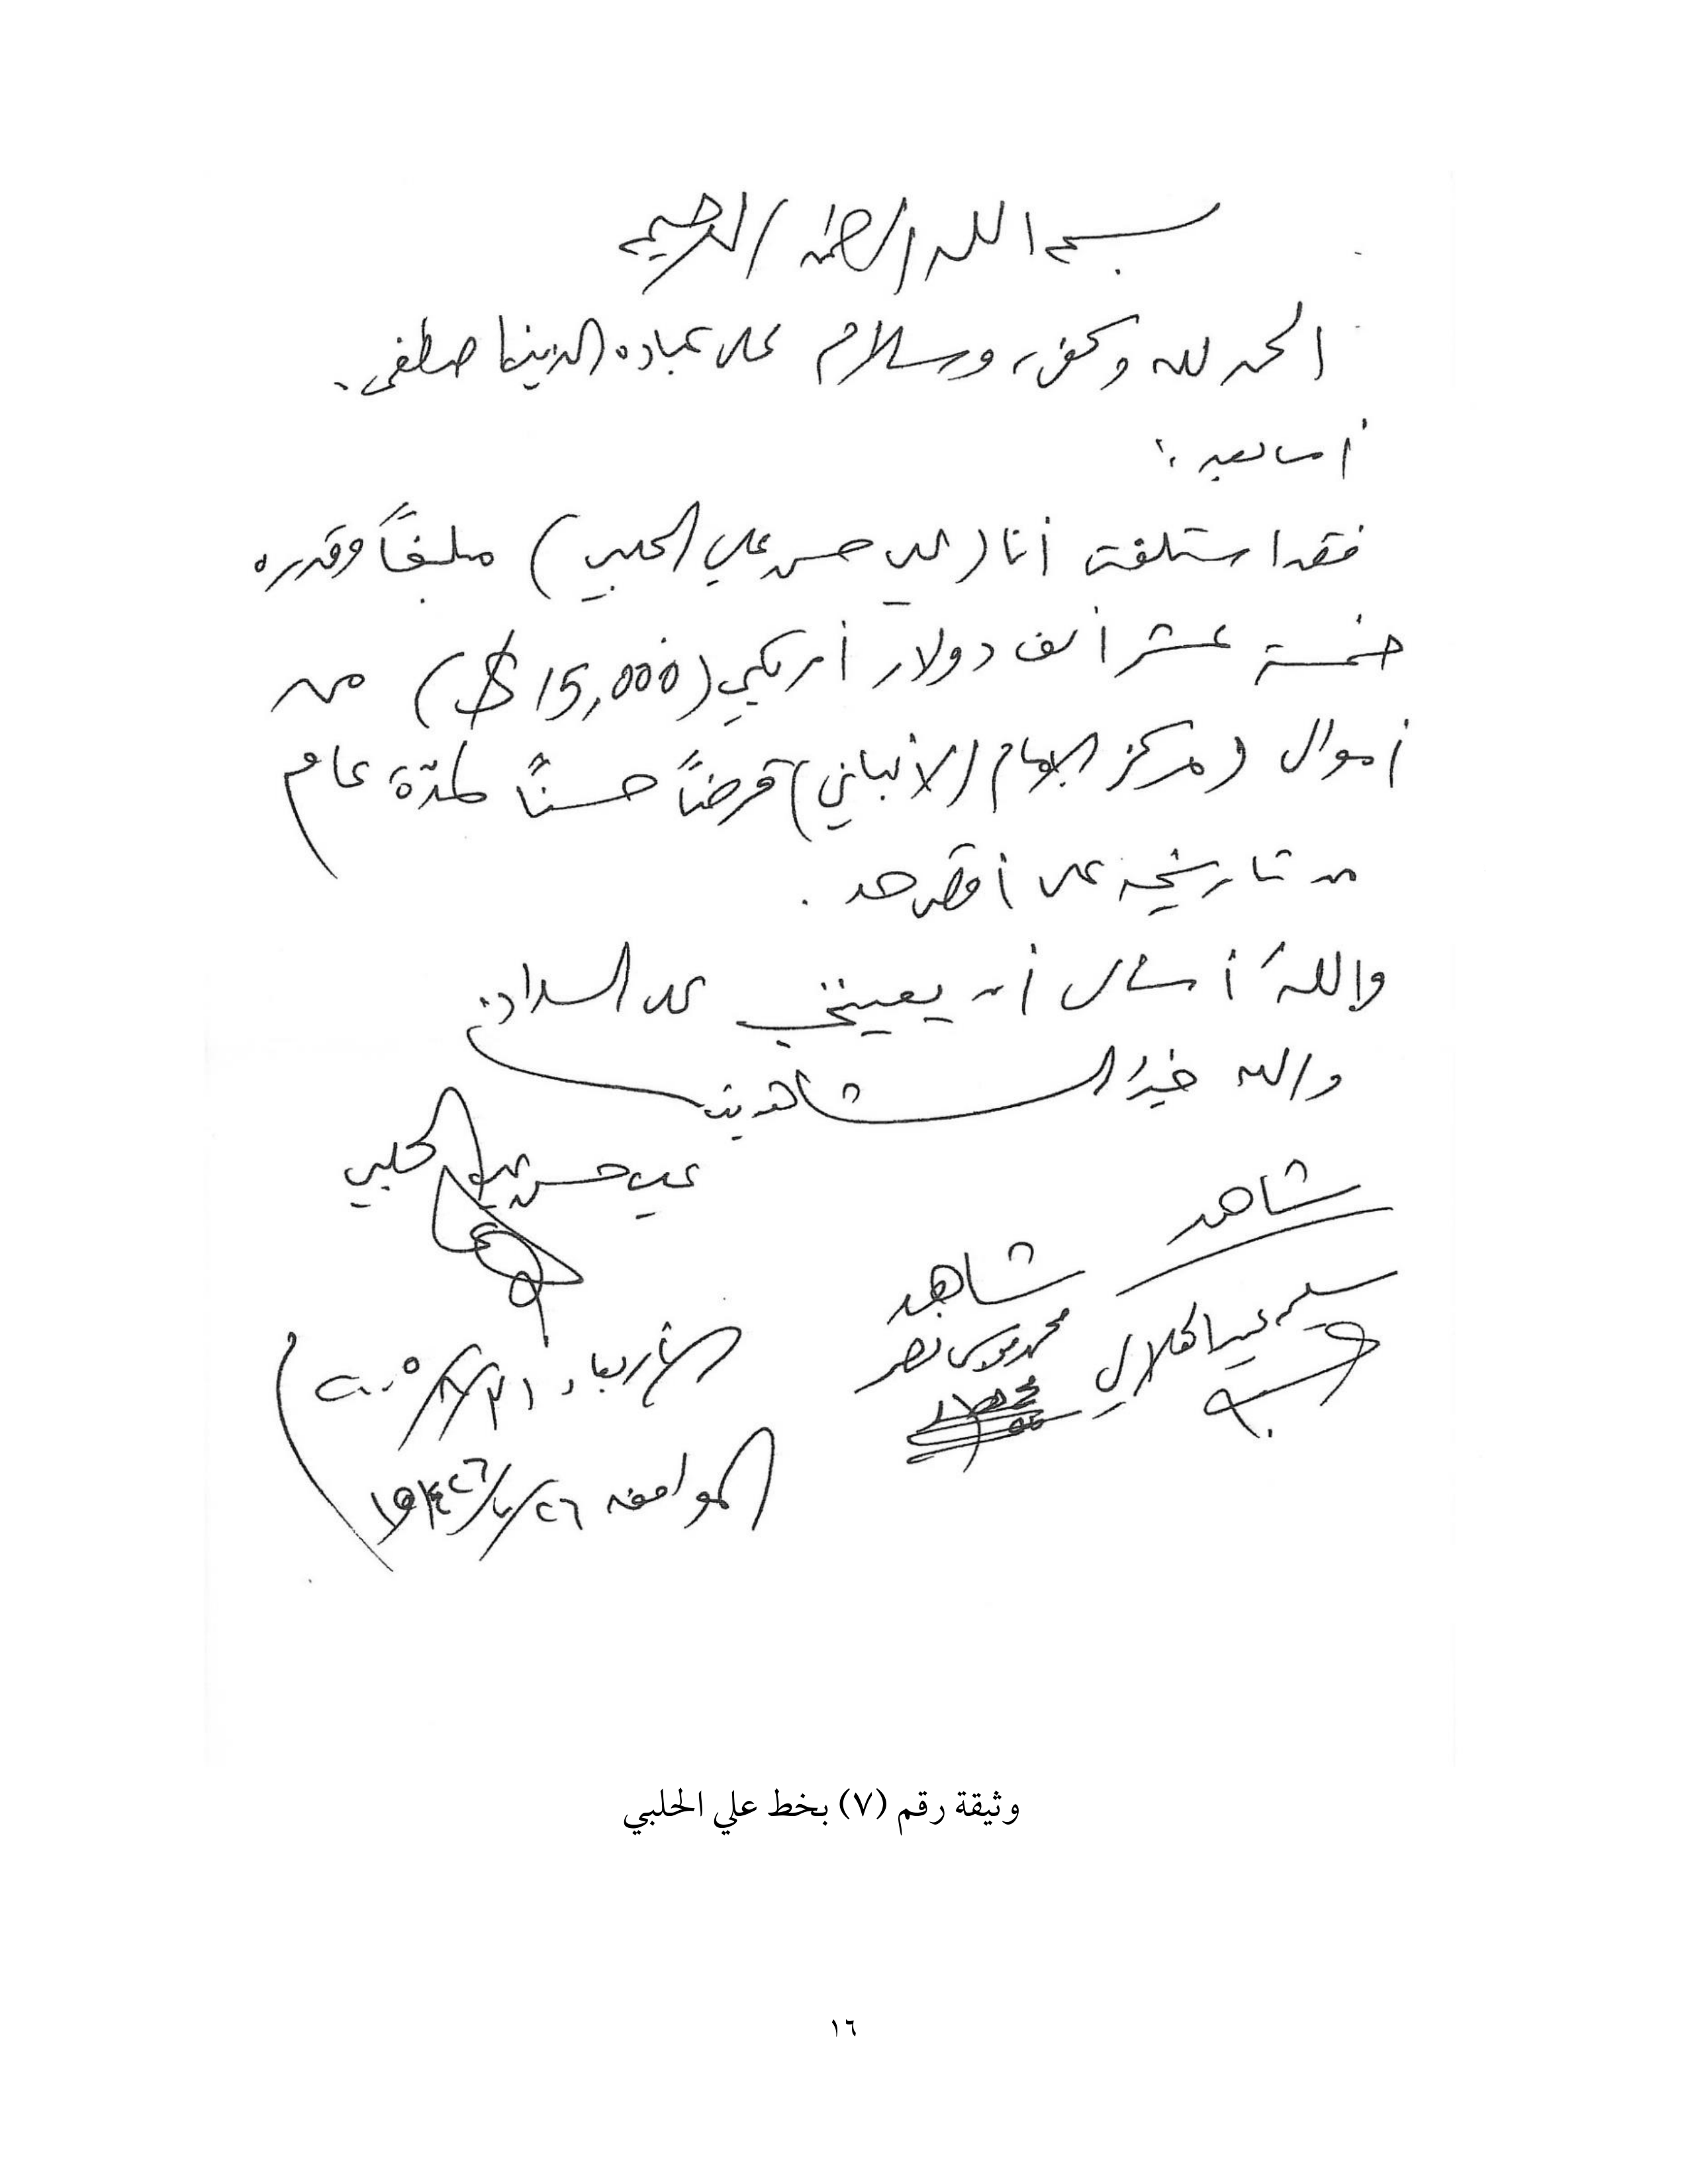 بسم الله الرحمن الرحيم
الحمد لله وكفى، وسلام على عباده الذين اصطفى.
أما بعد:
فقد استلفت أنا (علي حسن علي الحلبي) مبلغاً وقدره
خمسة عشر ألف دولار أمريكي (15,000 $) من
أموال (مركز الإمام الألباني) قرضاً حسناً لمدّة عام
من تاريخه على أقصى حد.
واللهَ أسأل أن يعينني على السداد.
والله خيرُ الشاهدين
علي حسن علي الحلبي
شاهد
شاهد
سليم عيد الهلالي
محمد موسى نصر
الأربعاء ٣١/٨/٢٠٠٥
الموافق ٢٦/٧/١٤٢٦ه
وثيقة رقم (٧) بخط علي الحلبي
١٦